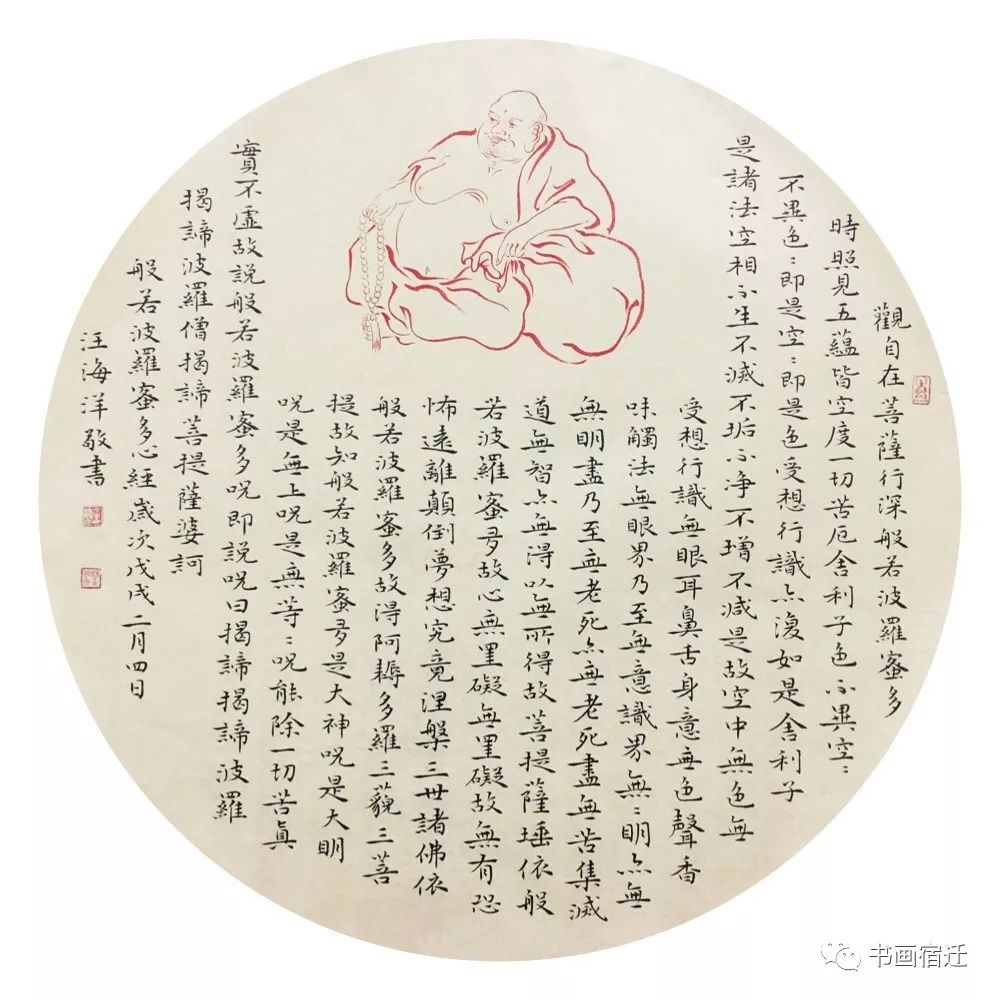 觀自在菩薩行深般若波羅蜜多
時照見五蘊皆空度一切苦厄舍利子色不異空〻
不異色〻即是空〻即是色受想行識亦復如是舍利子
是諸法空相不生不滅不垢不净不增不減是故空中無色無
受想行識無眼耳鼻舌身意無色聲香
味觸法無眼界乃至無意識界無〻明亦無
無明盡乃至無老死亦無老死盡無苦集滅
道無智亦無得以無所得故菩提薩埵依般
若波羅蜜多故心無罣礙無罣礙故無有恐
怖遠離顛倒夢想究竟涅槃三世諸佛依
般若波羅蜜多故得阿耨多羅三藐三菩
提故知般若波羅蜜多是大神呪是大明
呪是無上呪是無等〻呪能除一切苦真
實不虛故説般若波羅蜜多呪即説呪曰揭諦揭諦波羅
揭諦波羅僧揭諦菩提薩婆訶
般若波羅蜜多心經歲次戊戌二月四日
汪海洋敬書
书画宿迁